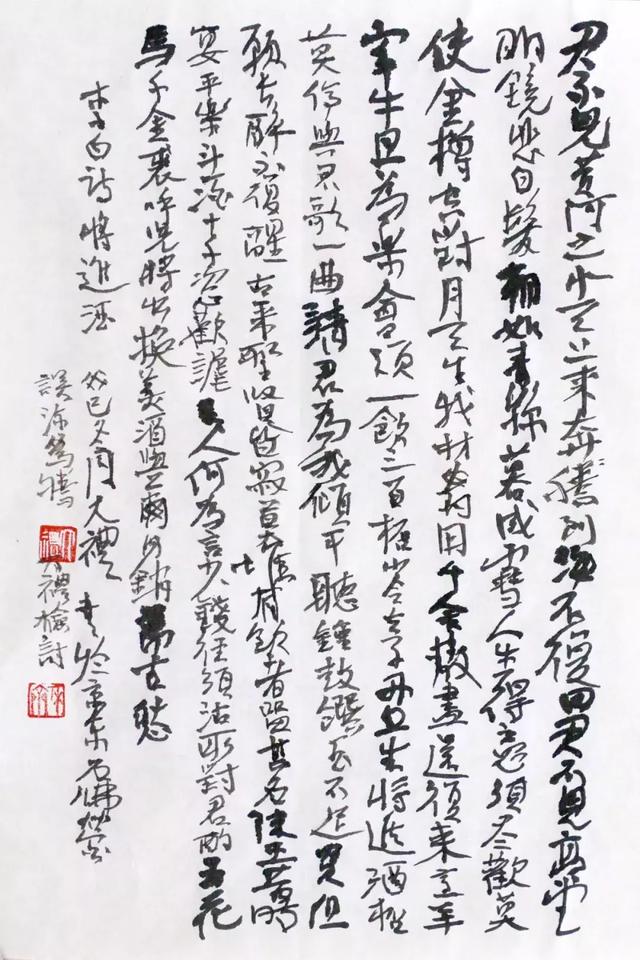 君不見黃河之水天上來奔騰到海不復回君不見高堂
明鏡悲白髮朝如青絲暮成雪人生得意須盡歡莫
使金樽空對月天生我材必有用千金散盡還復來烹羊
宰牛且為樂會須一飲三百杯岑夫子丹丘生將進酒杯
莫停與君歌一曲請君為我傾耳聽鐘鼓饌玉不足貴但
願長醉不復醒古來聖賢皆寂寞惟有飲者留其名陳王昔時
宴平樂斗酒十千恣歡謔主人何為言少錢徑須沽取對君酌五花
馬千金裘呼兒將出換美酒與爾同銷萬古愁
李白詩將進酒
癸巳冬月大禮書於京東石佛營
誤添騰
大禮檢討